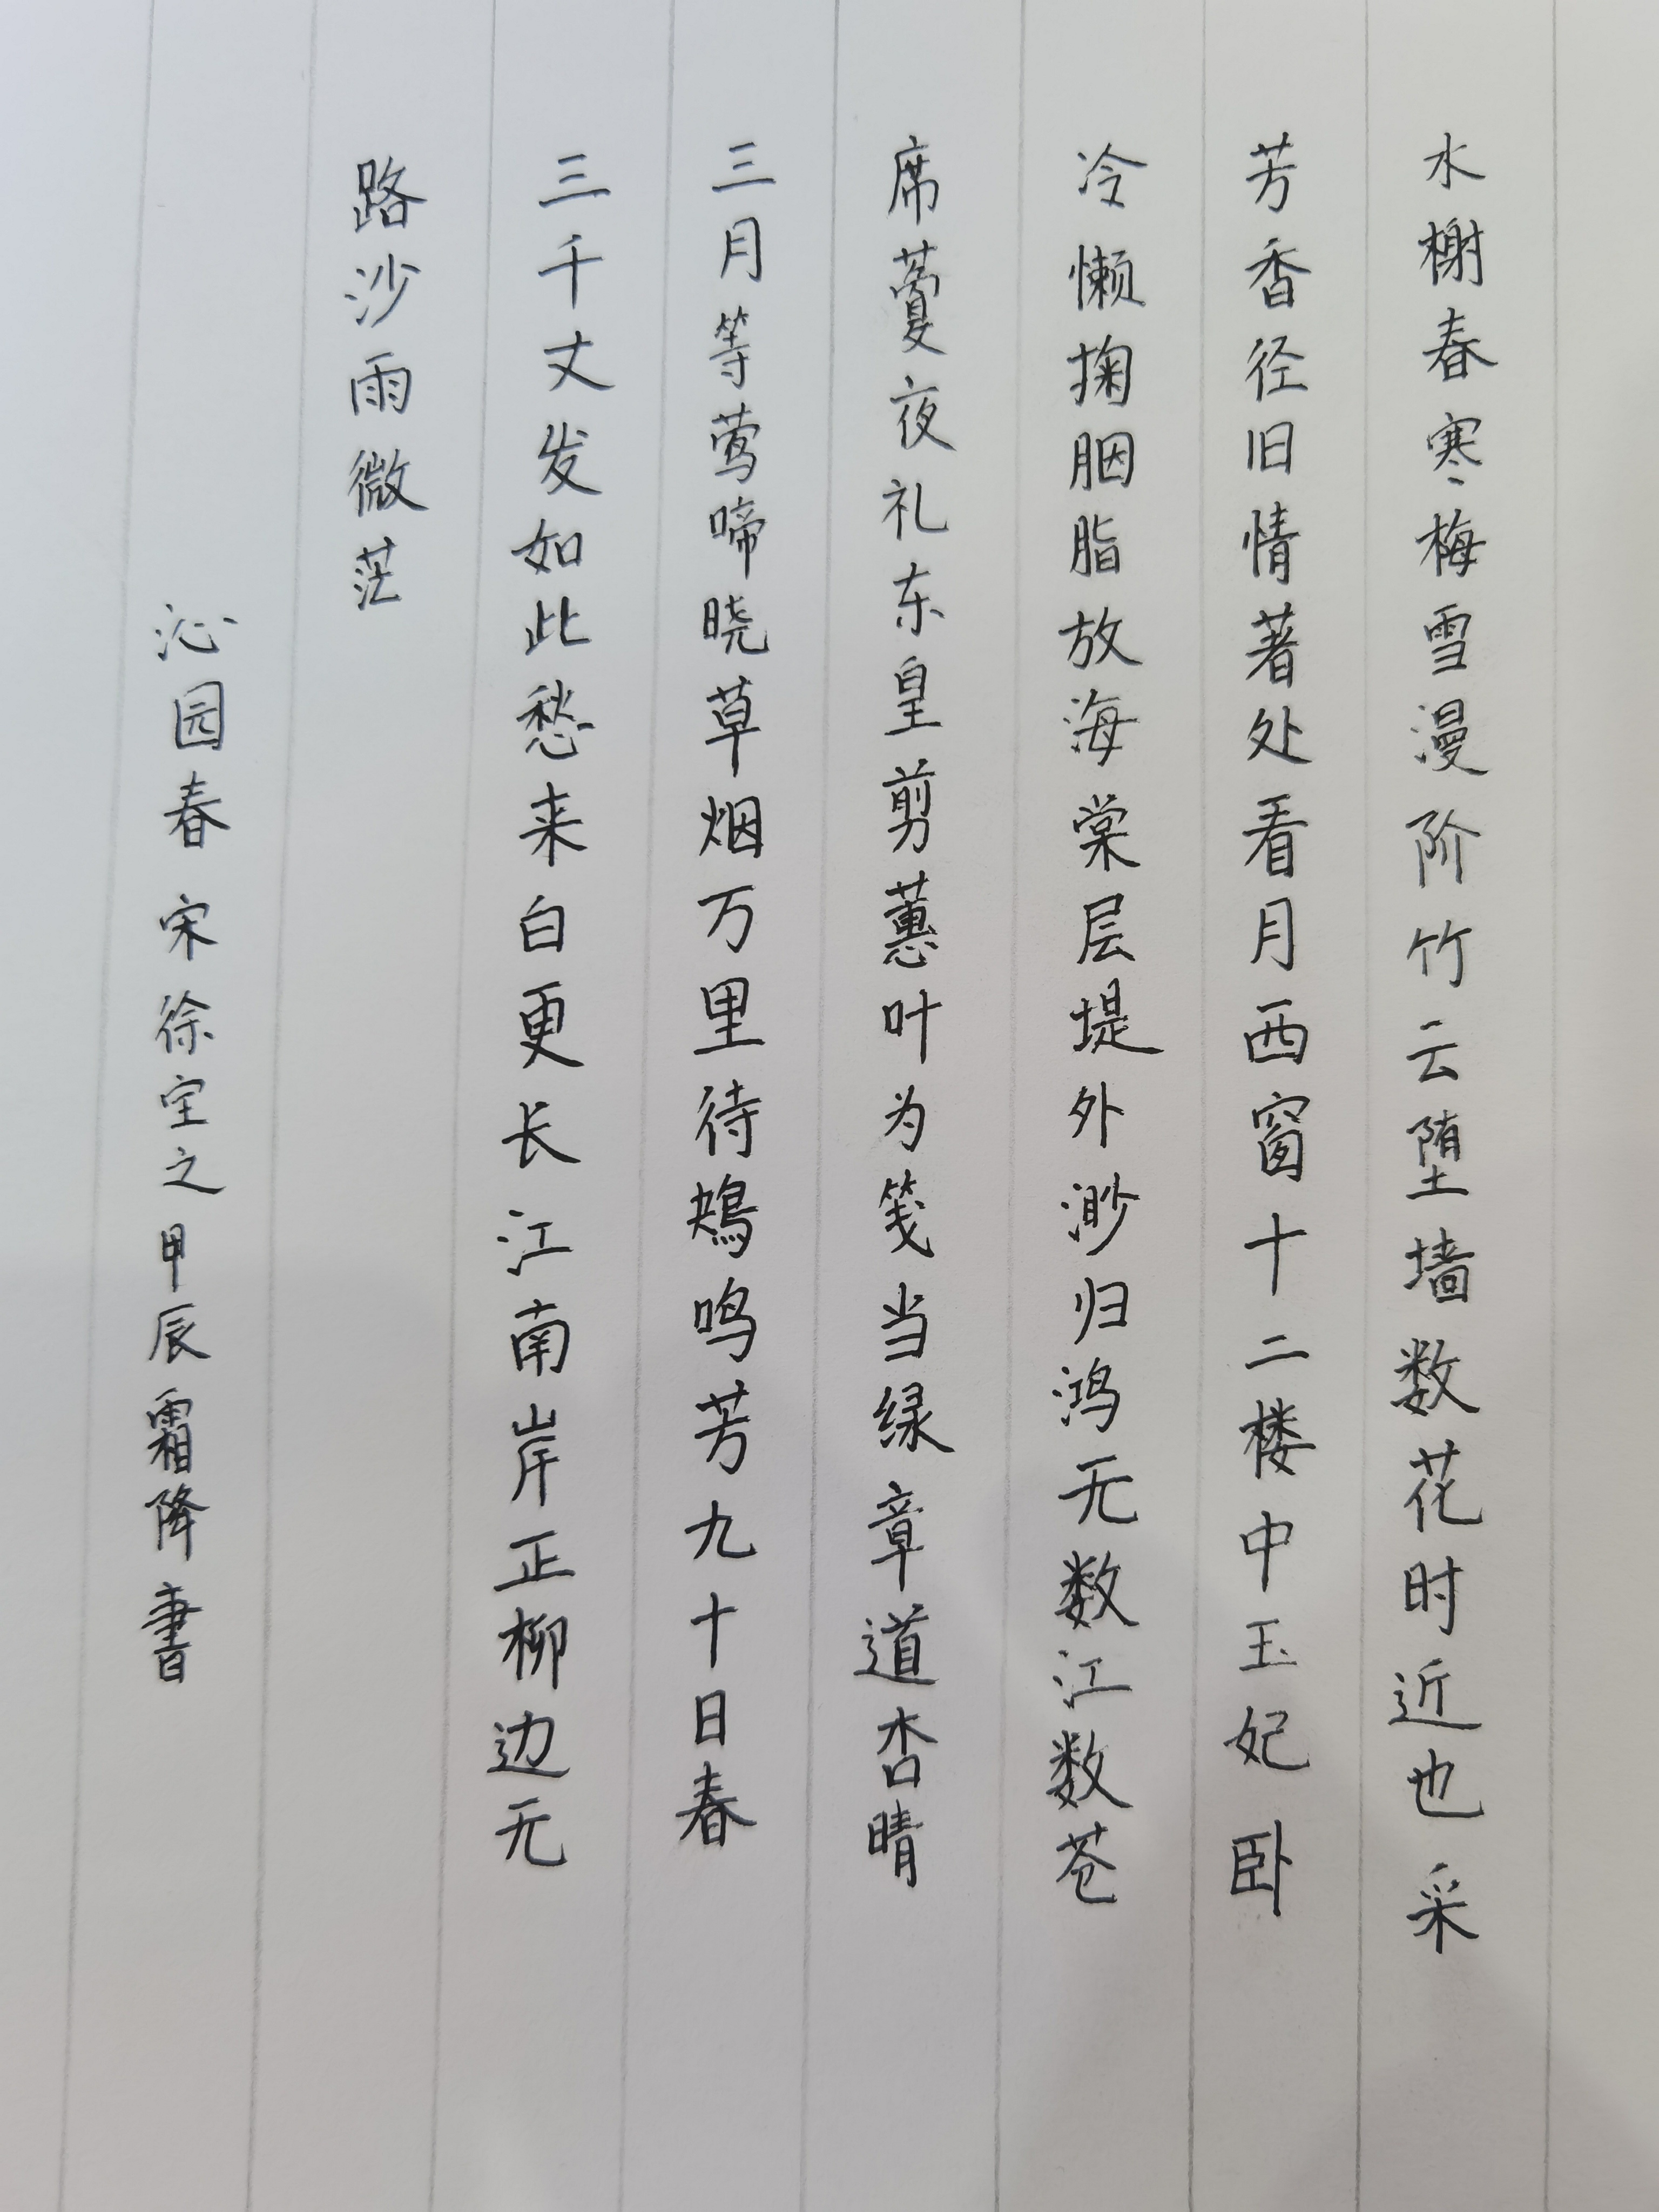 水榭春寒梅雪漫阶竹云堕墙数花时近也采
芳香径旧情著处看月西窗十二楼中玉妃卧
冷懒掬胭脂放海棠层堤外渺归鸿无数江数苍
席藑夜礼东皇剪蕙叶为笺当绿章道杏晴
三月等莺啼晓草烟万里待鴂鸣芳九十日春
三千丈发如此愁来白更长江南岸正柳边无
路沙雨微茫
沁园春 宋 徐宝之 甲辰霜降書